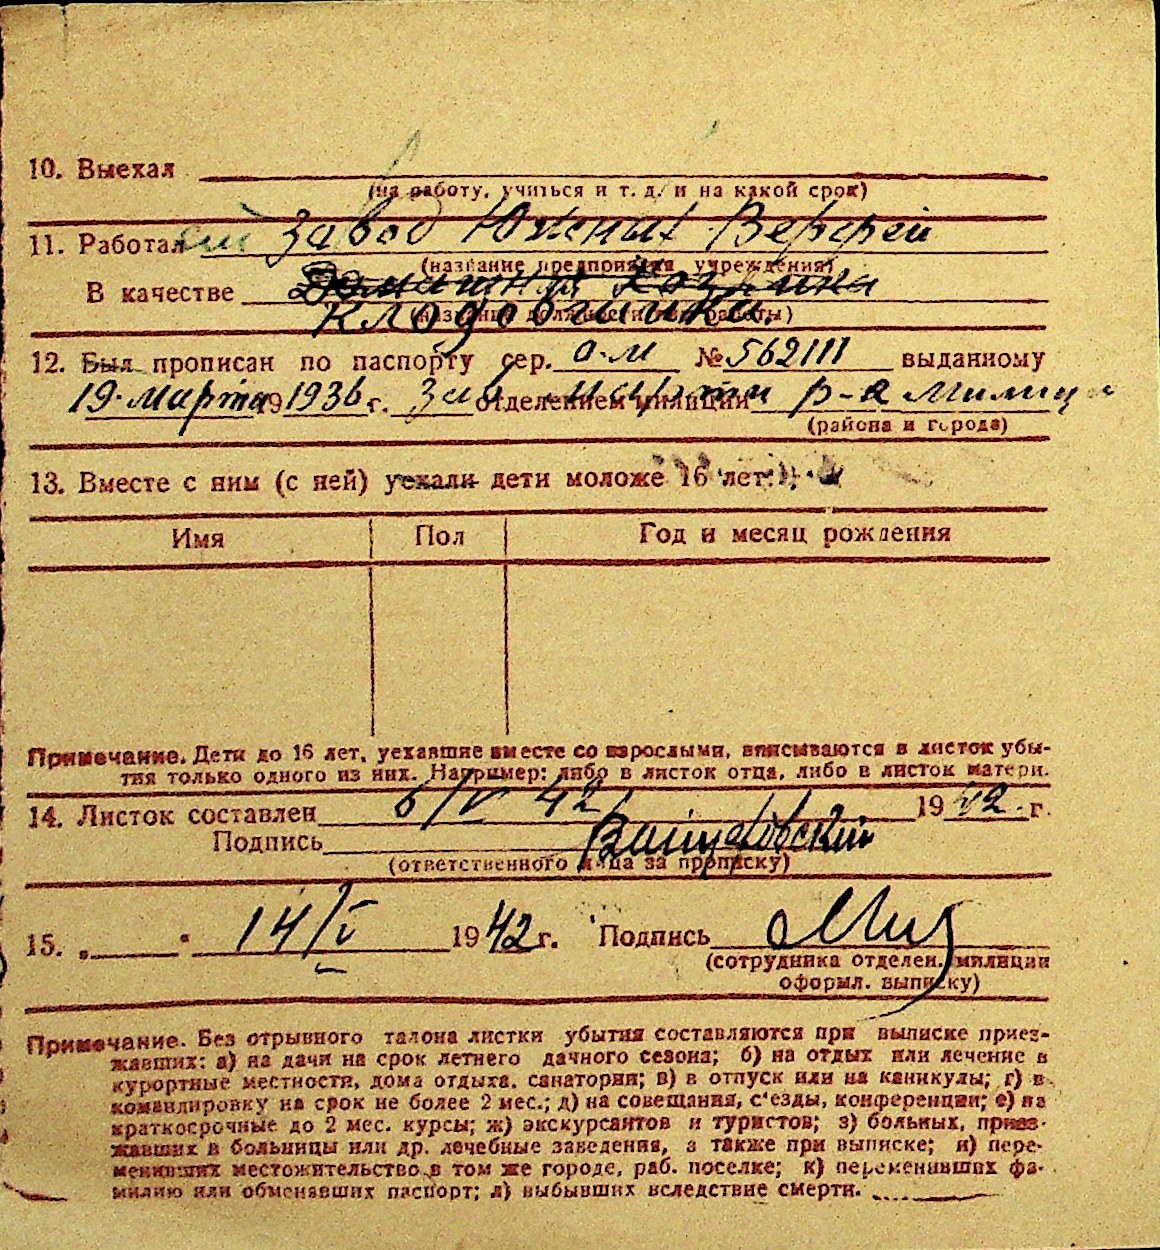 10. Выехал
(на работу, учиться и т. д. и на какой срок)
11. Работал завод Южных Верфей
(название предприятия учреждения)
В качестве Домашняя хозяйка
кладовщика.
12. Был прописан по паспорту сер. а-м № 562111 выданному
19 марта 19 1936 г. отделением милиции р-а милиц
(района и города)
13. Вместе с ним (с ней) уехали дети моложе 16 лет:
Имя Пол Год и месяц рождения
Примечание. Дети до 16 лет, уехавшие вместе со взрослыми, вписываются в листок убы-
тия только одного из них. Например: либо в листок отца, либо в листок матери.
14. Листок составлен 6/V 42 19 42 г.
Подпись
(ответственного лица за прописку)
15. „ “ 14/V 19 42 г. Подпись
(сотрудника отделен. милиции
оформл. выписку)
Примечание. Без отрывного талона листки убытия составляются при выписке приез-
жавших: а) на дачи на срок летнего дачного сезона; б) на отдых или лечение в
курортные местности, дома отдыха, санатории; в) в отпуск или на каникулы; г) в
командировку на срок не более 2 мес.; д) на совещания, с'езды, конференции; е) на
краткосрочные до 2 мес. курсы; ж) экскурсантов и туристов; з) больных, приез-
жавших в больницы или др. лечебные заведения, а также при выписке; и) пере-
менивших местожительство в том же городе, раб. поселке; к) переменивших фа-
милию или обменявших паспорт; л) выбывших вследствие смерти.